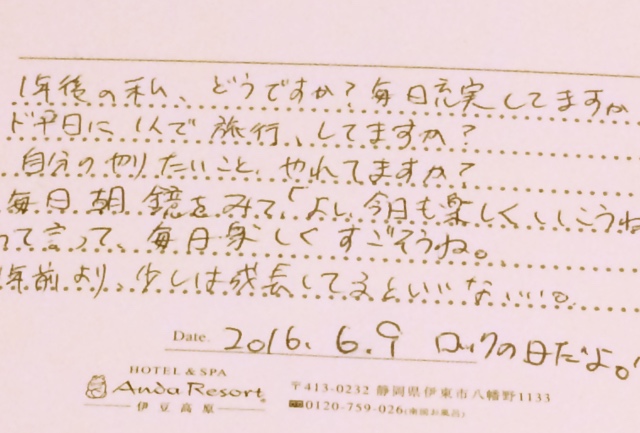 1年後の私、どうですか?毎日充実してますか
に1人で旅行、してますか?
自分のやりたいこと、やれてますか?
毎日朝鏡をみて「よし、今日も楽しくいこうね
って言って、毎日楽しくすごそうね。
年前より、少しは成長してるといいな
Date. 2016. 6. 9 ロックの日だよ。
HOTEL & SPA
Anda Resort
伊豆高原
〒413-0232 静岡県伊東市八幡野1133
0120-759-026